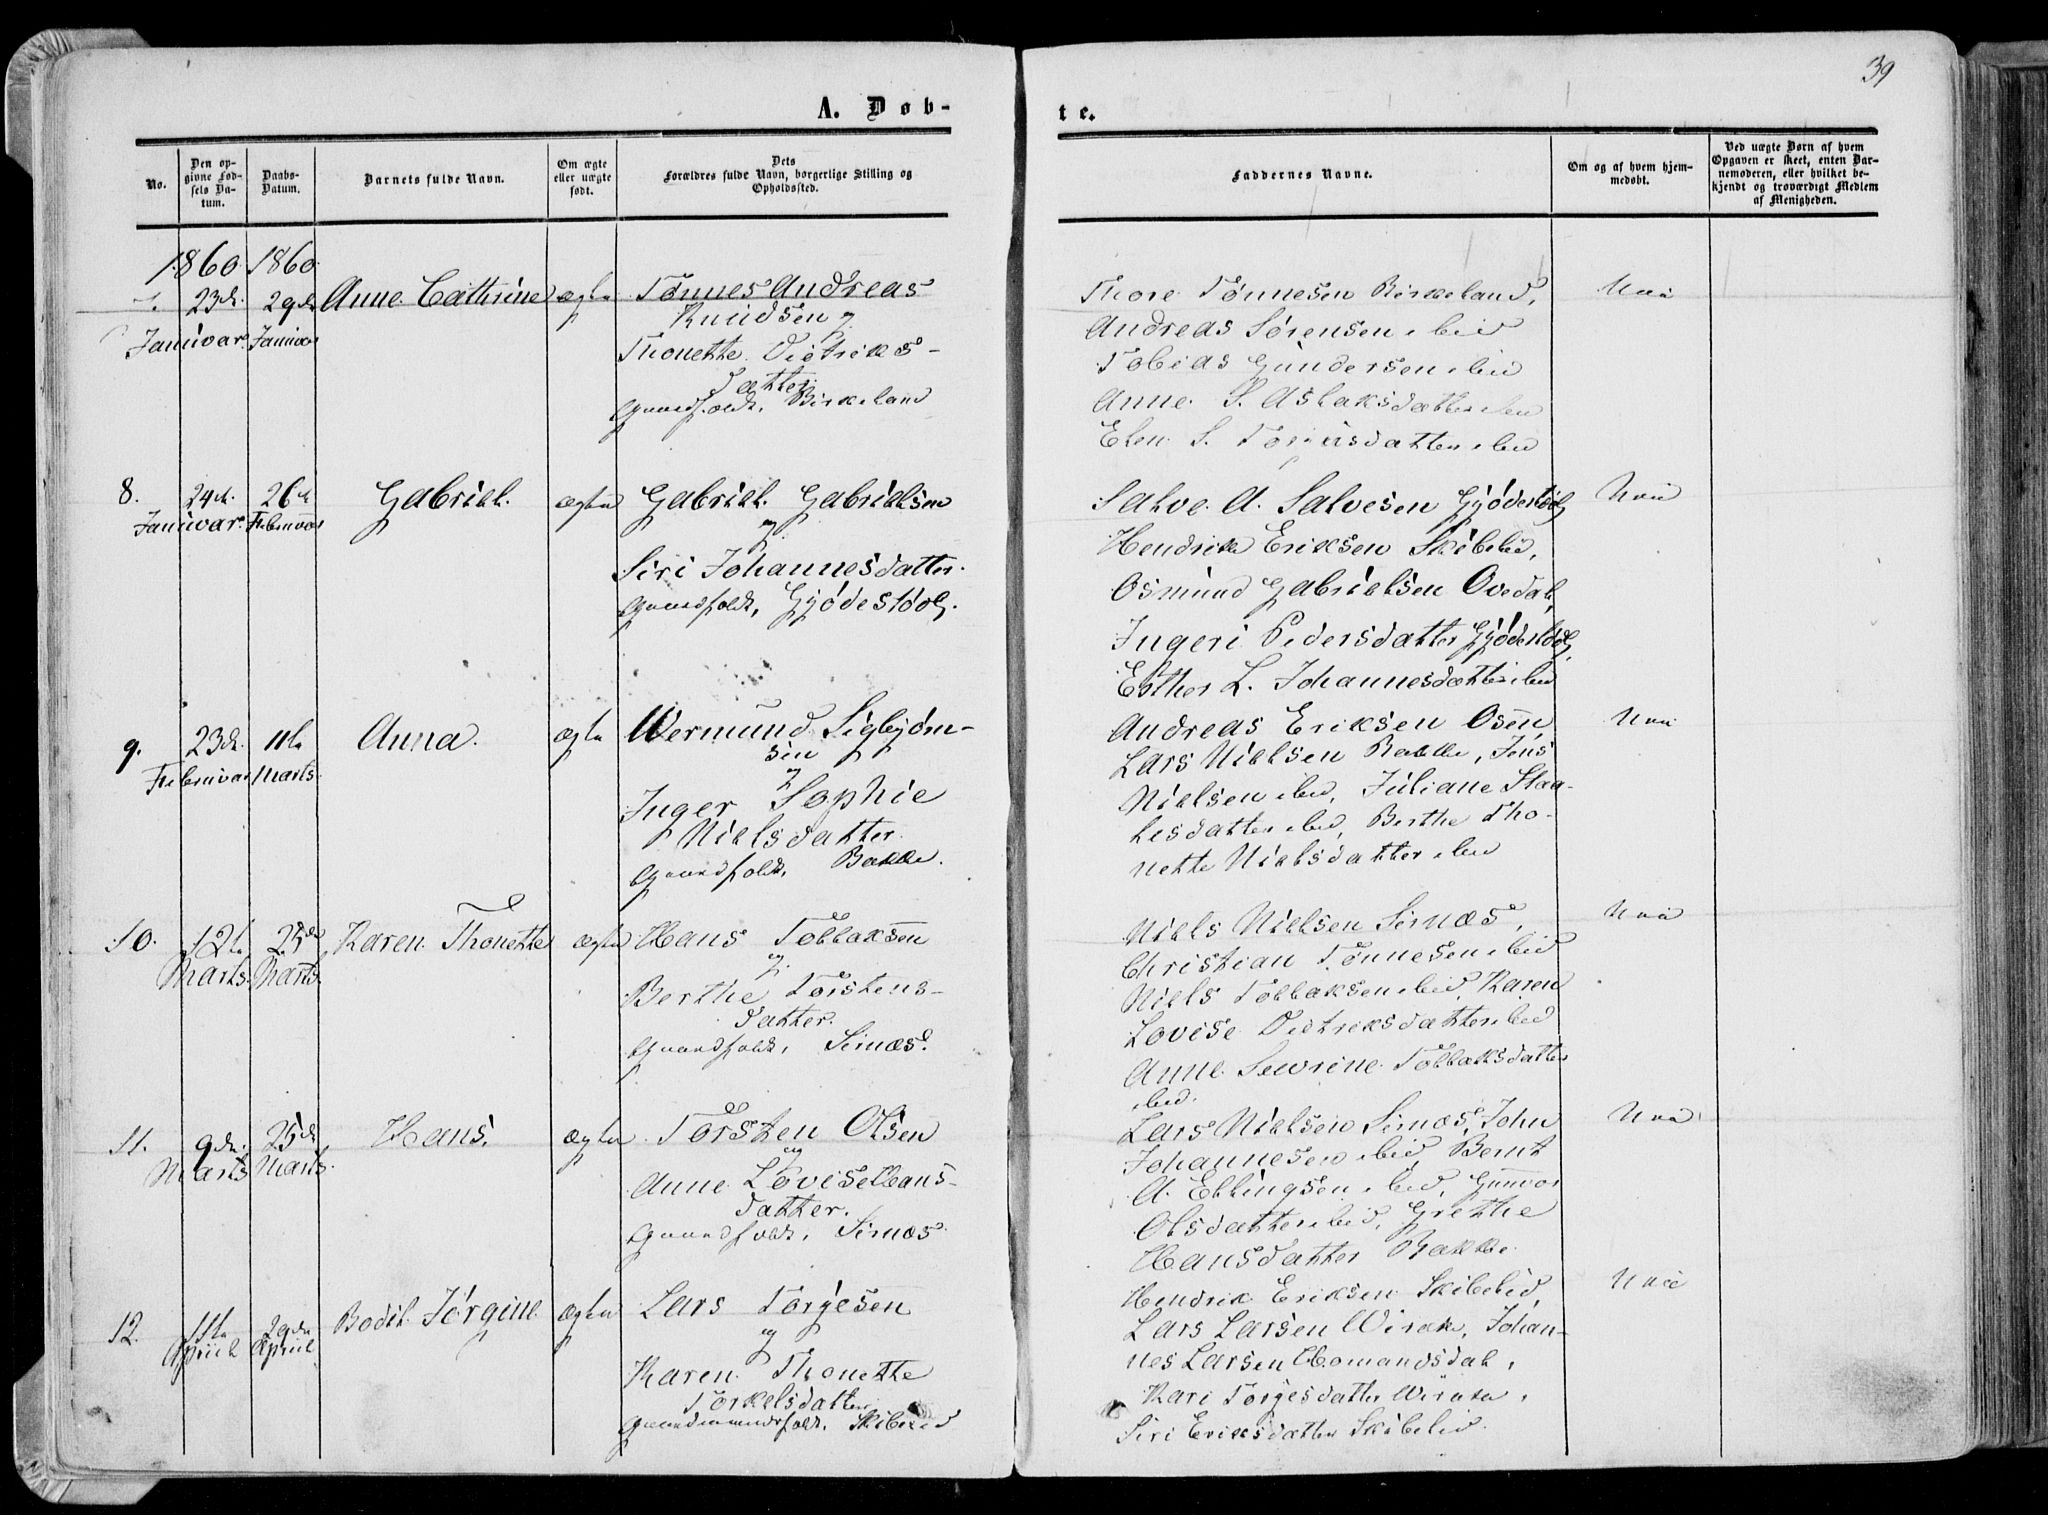 39
A. Døb-
te.
No.
Den op-
givne Fød-
sels Da-
tum.
Daabs-
Datum.
Barnets fulde Navn.
Om ægte
eller uægte
født.
Dets
Forældres fulde Navn, borgerlige Stilling og
Opholdssted.
Faddernes Navne.
Om og af hvem hjem-
medøbt.
Ved uægte Børn af hvem
Opgaven er skeet, enten Bar-
nemoderen, eller hvilket be-
kjendt og troværdigt Medlem
af Menigheden.
1860 1860
23de 29de Anne Cathrine ægte Tønnes Andreas
Januar Januar Knudsen og
Thonette Didriks-
datter
Gaardfolk, Birkeland
Thore Tønnesen Birkeland,
Andreas Sørensen ibid
Tobias Gundersen ibid
Anne S. Aslaksdatter ibid
Elen S. datter ibid
8. 24de 26de Gabriel. ægte Gabriel Gabrielsen
Januar Februar og
Siri Johannesdatter.
Gaardfolk, Gjødestøl.
Salve A. Salvesen Gjødestøl
Hendrik Eriksen Skibelid,
Osmund Gabrielsen Ovedal,
Ingeri Pedersdatter Gjødestøl,
Esther L. Johannesdatter ibid
9. 23de 11te Anna. ægte Wermund Sigbjørn-
Februar Marts. sen
og
Inger Sophie
Nielsdatter.
Gaardfolk, Bakke.
Andreas Eriksen Osen,
Lars Nielsen Bakke, Jens
Nielsen ibid, Juliane Staa-
lesdatter ibid, Berthe Tho-
nette Nielsdatter ibid
10. 12te 25de Karen Thonette ægte Hans Tollaksen
Marts. Marts. og
Berthe Torstens-
datter.
Gaardfolk, Sirnæs.
Niels Nielsen Sirnæs,
Christian Tønnesen ibid
Niels Tollaksen ibid, Karen
Lovise Didriksdatter ibid
Anne Sevrine Tollaksdatter
ibid.
11. 9de 25de Hans. ægte Torsten Olsen
Marts Marts. og
Anne Lovise Hans-
datter.
Gaardfolk, Sirnæs.
Lars Nielsen Sirnæs, John
Johannesen ibid, Bernt
A. Ellingsen ibid, Gunvor
Olsdatter ibid, Grethe
Hansdatter Bakke.
12. 11te 29de Bodil Jørgine. ægte Lars Torgesen
April April. og
Karen Thonette
Torkelsdatter
Gaardmandsfolk, Skibelid
Hendrik Eriksen Skibelid
Lars Larsen Wirak, Johan-
nes Larsen Homandsdal,
Kari Torgesdatter Wirak,
Siri Eriksdatter Skibelid.